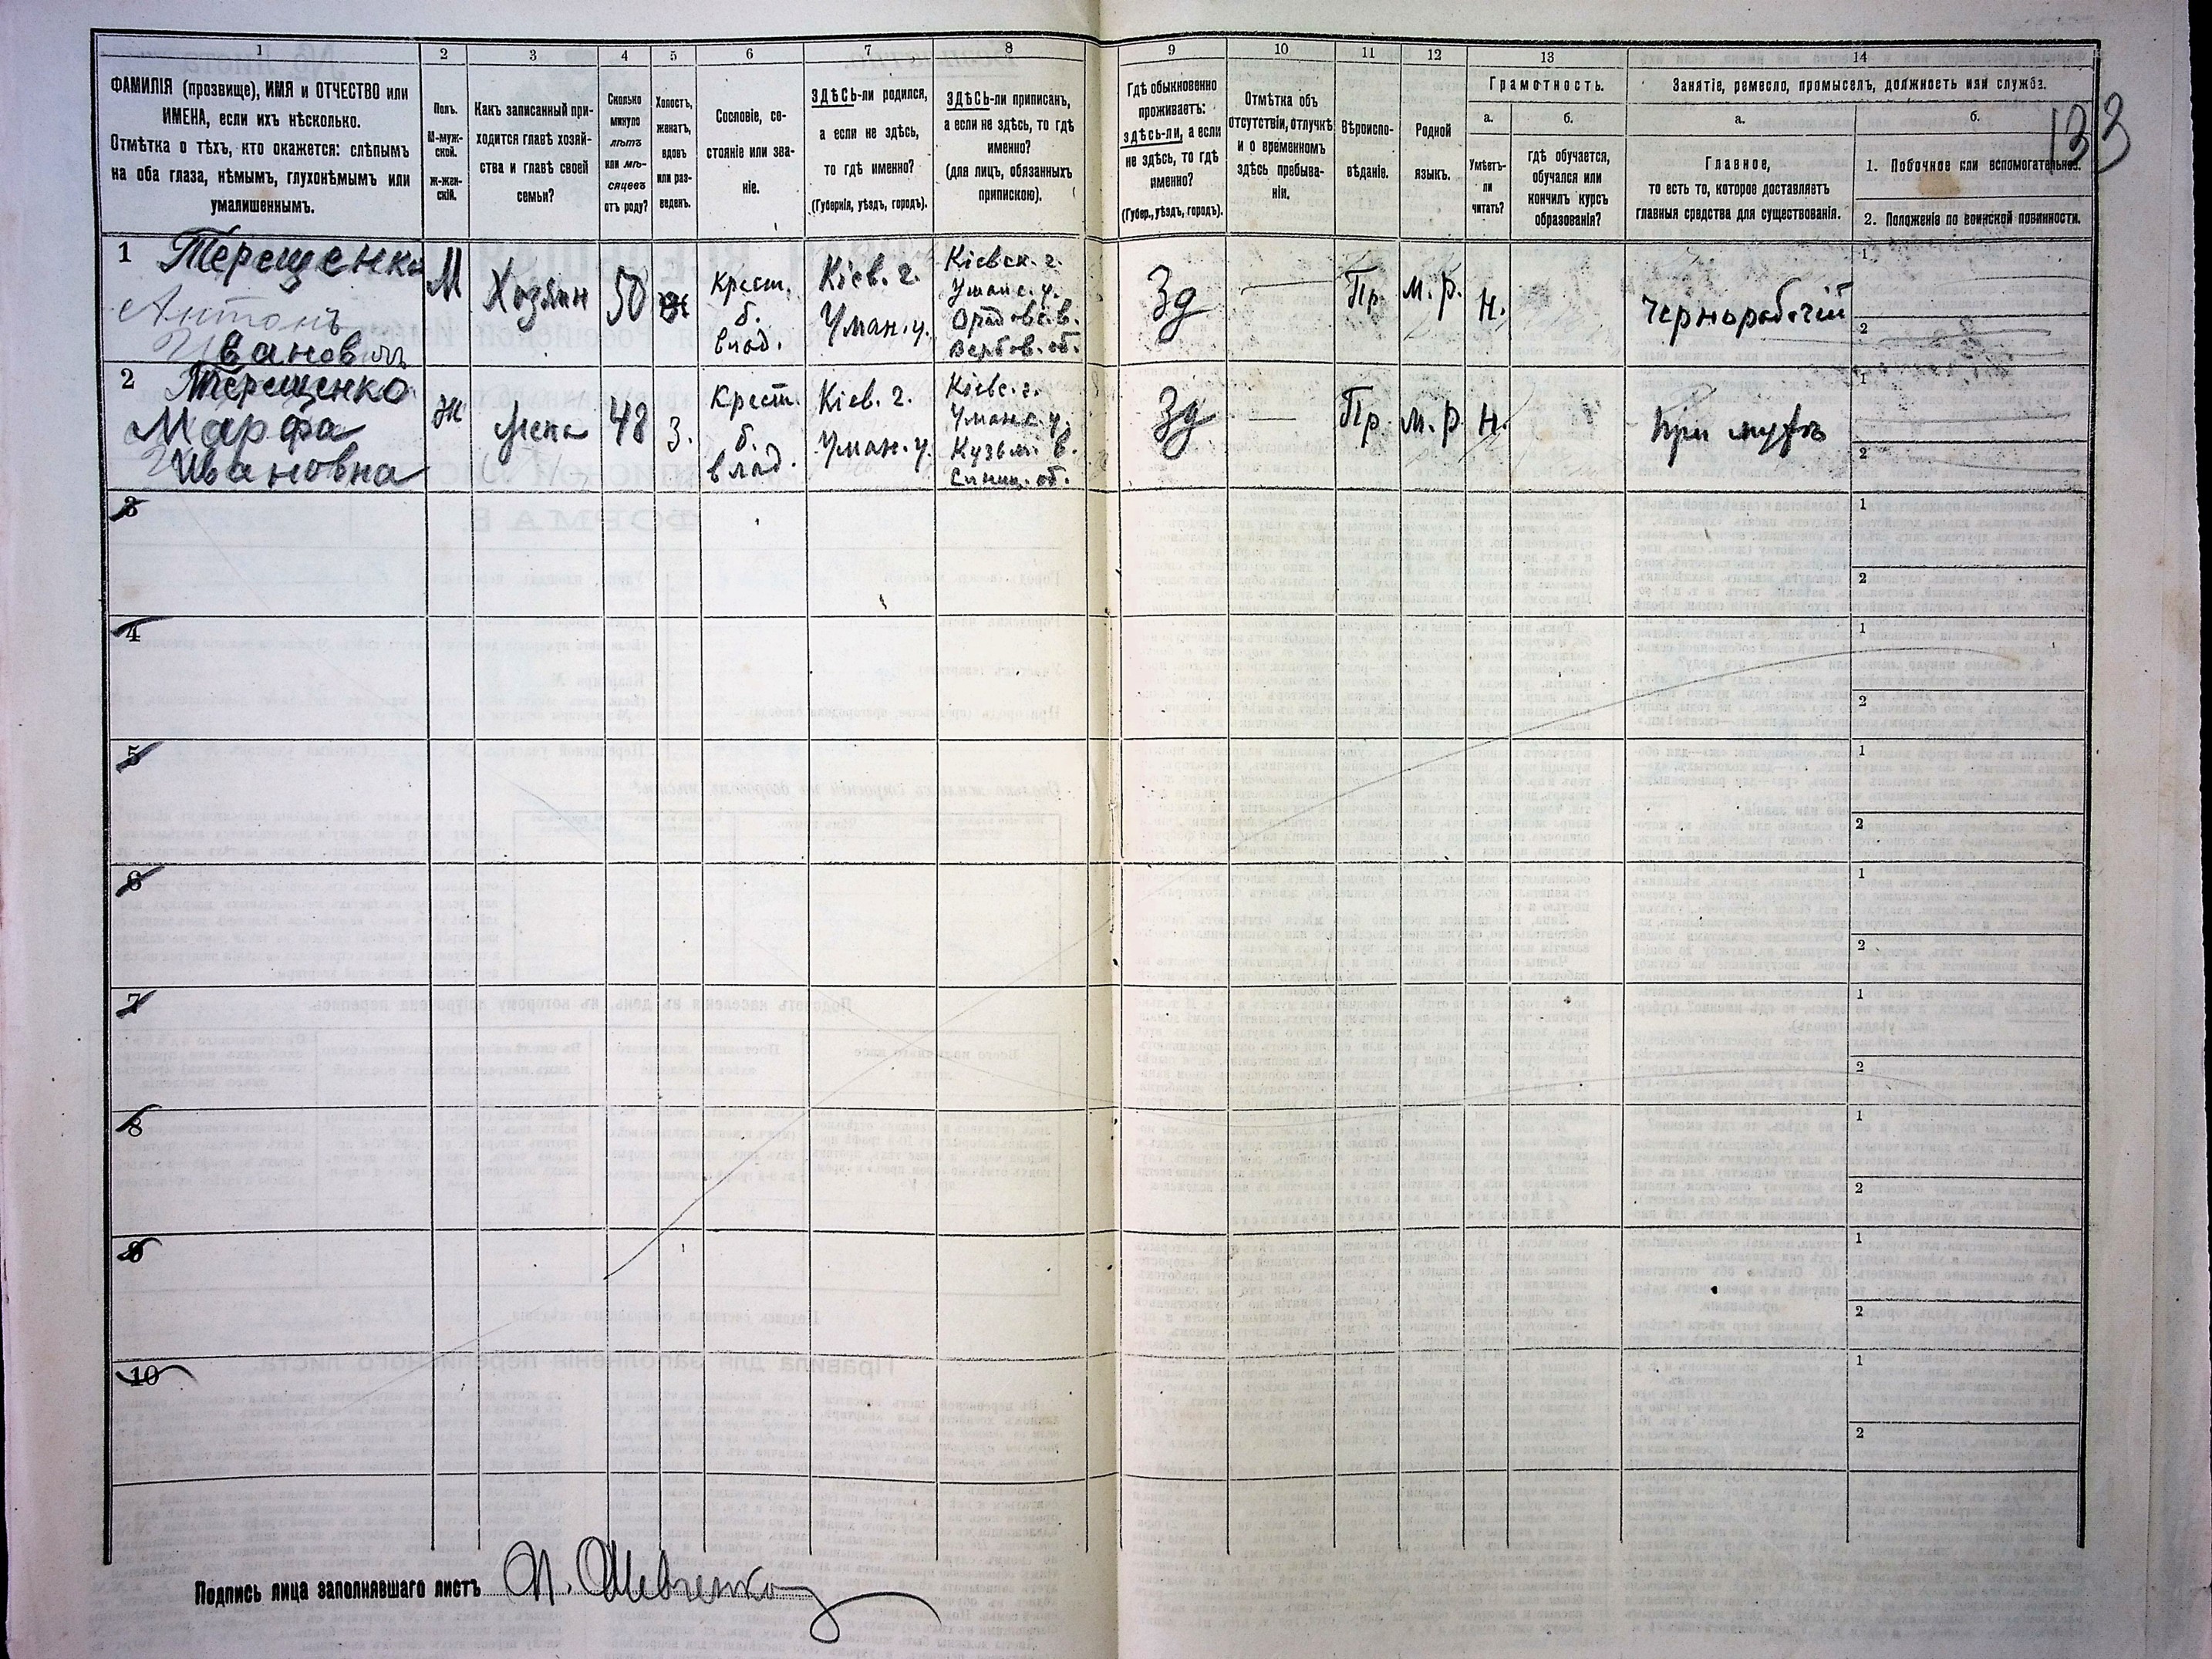 1 2 3 4 5 6 7 8 9 10 11 12 13 14
ФАМИЛІЯ (прозвище), ИМЯ и ОТЧЕСТВО или
ИМЕНА, если ихъ нѣсколько.
Отмѣтка о тѣхъ, кто окажется: слѣпымъ
на оба глаза, нѣмымъ, глухонѣмымъ или
умалишеннымъ.
Полъ.
М-муж-
ской.
ж-жен-
скій.
Какъ записанный при-
ходится главѣ хозяй-
ства и главѣ своей
семьи?
Сколько
минуло
лѣтъ
или мѣ-
сяцевъ
отъ роду?
Холостъ,
женатъ,
вдовъ
или раз-
веденъ.
Сословіе, со-
стояніе или зва-
ніе.
ЗДѢСЬ-ли родился,
а если не здѣсь,
то гдѣ именно?
(Губернія, уѣздъ, городъ).
ЗДѢСЬ-ли приписанъ,
а если не здѣсь, то гдѣ
именно?
(для лицъ, обязанныхъ
припискою).
Гдѣ обыкновенно
проживаетъ:
здѣсь-ли, а если
не здѣсь, то гдѣ
именно?
(Губер., уѣздъ, городъ).
Отмѣтка объ
отсутствіи, отлучкѣ
и о временномъ
здѣсь пребыва-
ніи.
Вѣроиспо-
вѣданіе.
Родной
языкъ.
Грамотность.
а.
Умѣетъ-
ли
читать?
б.
гдѣ обучается,
обучался или
кончилъ курсъ
образованія?
Занятіе, ремесло, промыселъ, должность или служба.
а.
Главное,
то есть то, которое доставляетъ
главныя средства для существованія.
б.
1. Побочное или вспомогательное.
2. Положеніе по воинской повинности.
133
1 Терещенко
Антонъ
Ивановичъ
М
Хозяин
50
Крест.
б.
влад.
Кіев. г.
Уман. у.
Кіевск. г.
Уманс. у.
Вербов. об.
Зд
Пр.
м. р.
Н.
Чернорабочій
1
2
2 Терещенко
Марфа
Ивановна
Ж
Жена
48
З.
Крест.
б.
влад.
Кіев. г.
Уман. у.
Кіевс. г.
Уманс. у.
Кузьм. в.
Синиц. об.
Зд
Пр.
м. р.
Н.
При мужѣ
1
2
3
1
2
4
1
2
5
1
2
6
1
2
7
1
2
8
1
2
9
1
2
10
1
2
Подпись лица заполнявшаго листъ П. Шевченко